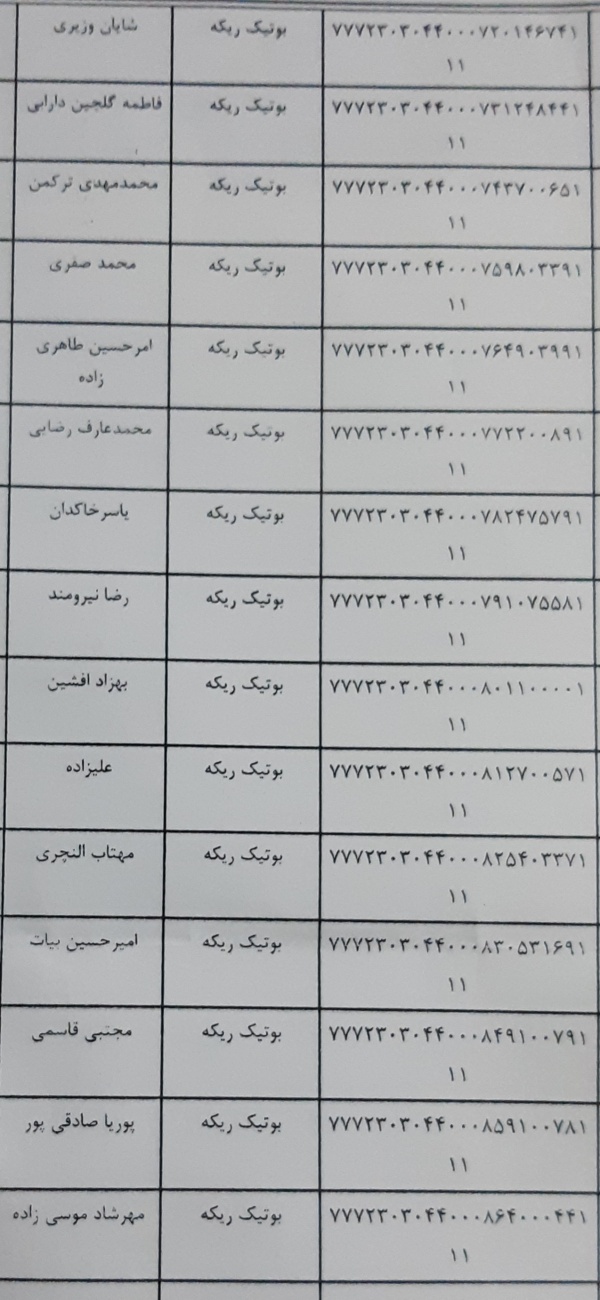 ۷۷۷۲۳۰۳۰۴۴۰۰۰۷۲۰۱۴۶۷۴۱ بوتیک ریکه شایان وزیری
۱۱
۷۷۷۲۳۰۳۰۴۴۰۰۰۷۳۱۲۴۸۴۴۱ بوتیک ریکه فاطمه گلچین دارابی
۱۱
۷۷۷۲۳۰۳۰۴۴۰۰۰۷۴۳۷۰۰۶۵۱ بوتیک ریکه محمدمهدی ترکمن
۱۱
۷۷۷۲۳۰۳۰۴۴۰۰۰۷۵۹۸۰۳۳۹۱ بوتیک ریکه محمد صفری
۱۱
۷۷۷۲۳۰۳۰۴۴۰۰۰۷۶۴۹۰۳۹۹۱ بوتیک ریکه امرحسین طاهری
۱۱ زاده
۷۷۷۲۳۰۳۰۴۴۰۰۰۷۷۲۲۰۰۸۹۱ بوتیک ریکه محمدعارف رضایی
۱۱
۷۷۷۲۳۰۳۰۴۴۰۰۰۷۸۲۴۷۵۷۹۱ بوتیک ریکه یاسرخاکدان
۱۱
۷۷۷۲۳۰۳۰۴۴۰۰۰۷۹۱۰۷۵۵۸۱ بوتیک ریکه رضا نیرومند
۱۱
۷۷۷۲۳۰۳۰۴۴۰۰۰۸۰۱۱۰۰۰۰۱ بوتیک ریکه بهزاد افشین
۱۱
۷۷۷۲۳۰۳۰۴۴۰۰۰۸۱۲۷۰۰۵۷۱ بوتیک ریکه علیزاده
۱۱
۷۷۷۲۳۰۳۰۴۴۰۰۰۸۲۵۴۰۳۳۷۱ بوتیک ریکه مهتاب النچری
۱۱
۷۷۷۲۳۰۳۰۴۴۰۰۰۸۳۰۵۳۱۶۹۱ بوتیک ریکه امیرحسین بیات
۱۱
۷۷۷۲۳۰۳۰۴۴۰۰۰۸۴۹۱۰۰۷۹۱ بوتیک ریکه مجتبی قاسمی
۱۱
۷۷۷۲۳۰۳۰۴۴۰۰۰۸۵۹۱۰۰۷۸۱ بوتیک ریکه پوریا صادقی پور
۱۱
۷۷۷۲۳۰۳۰۴۴۰۰۰۸۶۴۰۰۰۴۴۱ بوتیک ریکه مهرشاد موسی زاده
۱۱